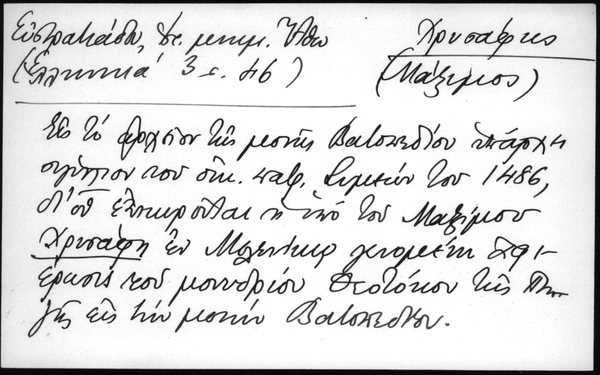 Εὐστρατιάδη, Ἄθω
Χρυσάφης
(Ἑλληνικά 3 σ. 46)
(Μάξιμος)
Εἰς τὸ ἀρχεῖον τῆς μονῆς Βατοπεδίου ὑπάρχει
σιγίλλιον τοῦ οἰκ. πατρ. Συμεὼν τοῦ 1486,
δι' οὗ ἐπικυροῦται ἡ ὑπὸ τοῦ Μαξίμου
Χρυσάφη ἐν Μελενίκῳ γενομένη ἀφι-
έρωσις τοῦ μονυδρίου Θεοτόκου τῆς Πη-
γῆς εἰς τὴν μονὴν Βατοπεδίου.